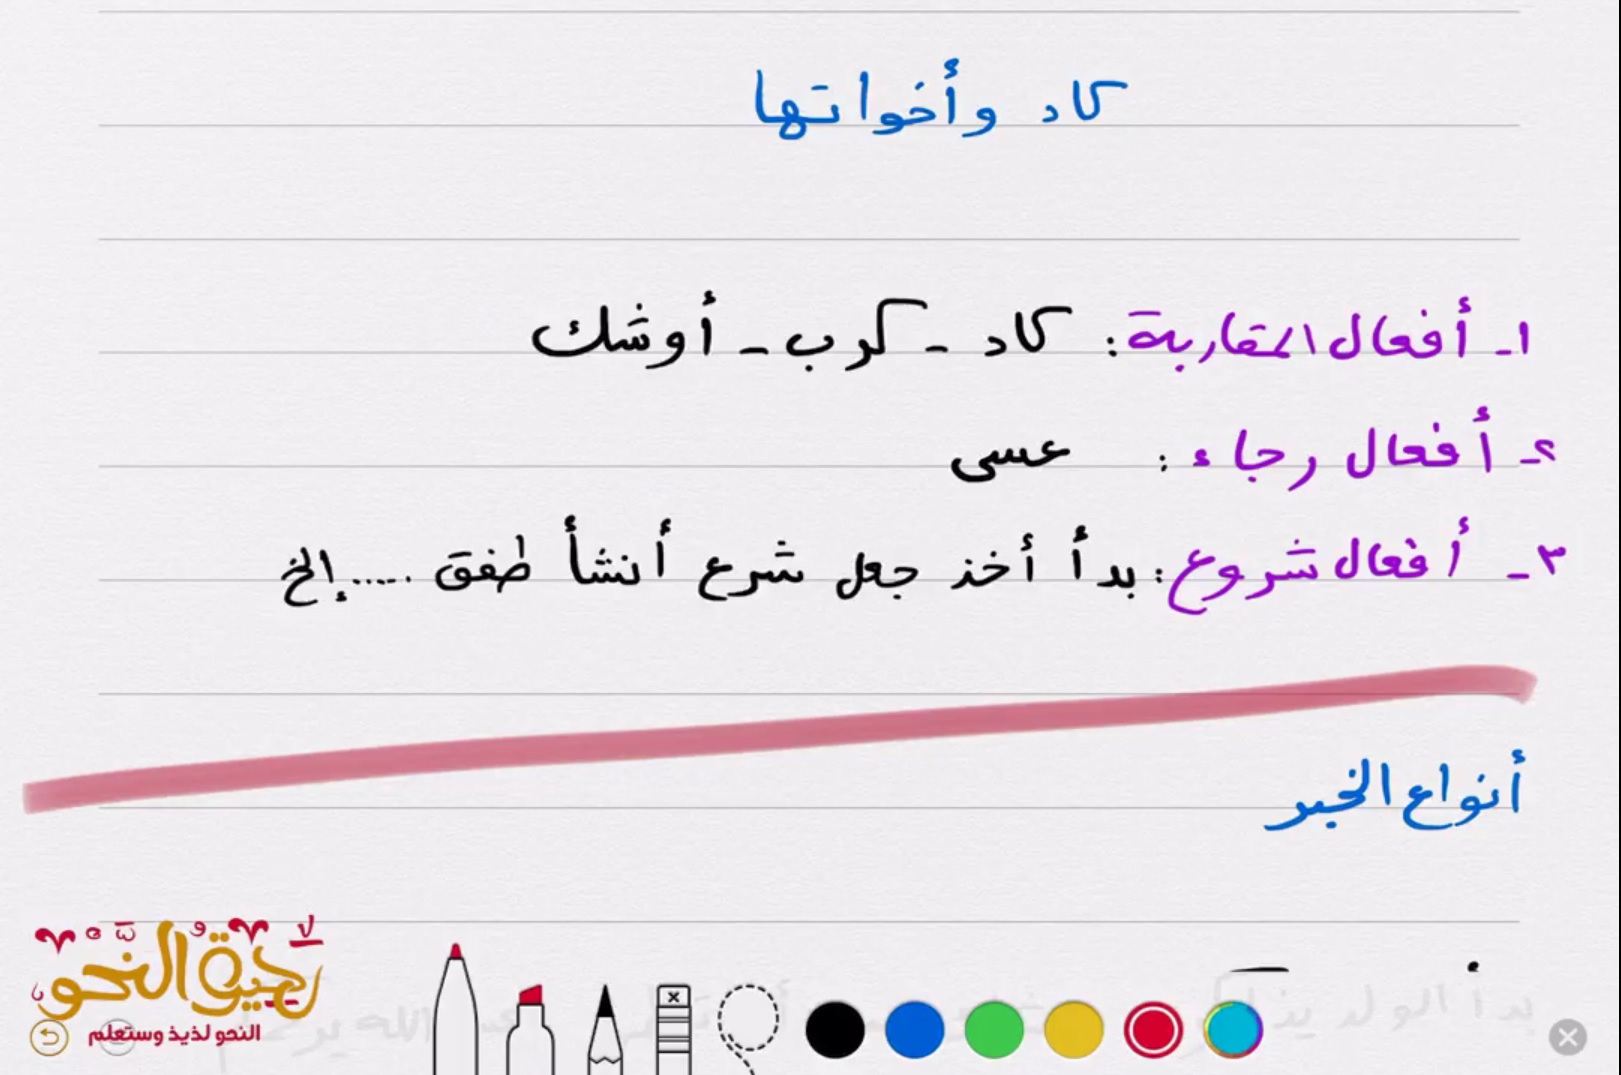 كاد وأخواتها
١ـ أفعال المقاربة: كاد ـ كرب ـ أوشك
٢ـ أفعال رجاء: عسى
٣ـ أفعال شروع: بدأ أخذ جعل شرع أنشأ طفق .....إلخ
أنواع الخبر
بدأ الولد
رحيق النحو
النحو لذيذ وستعلم